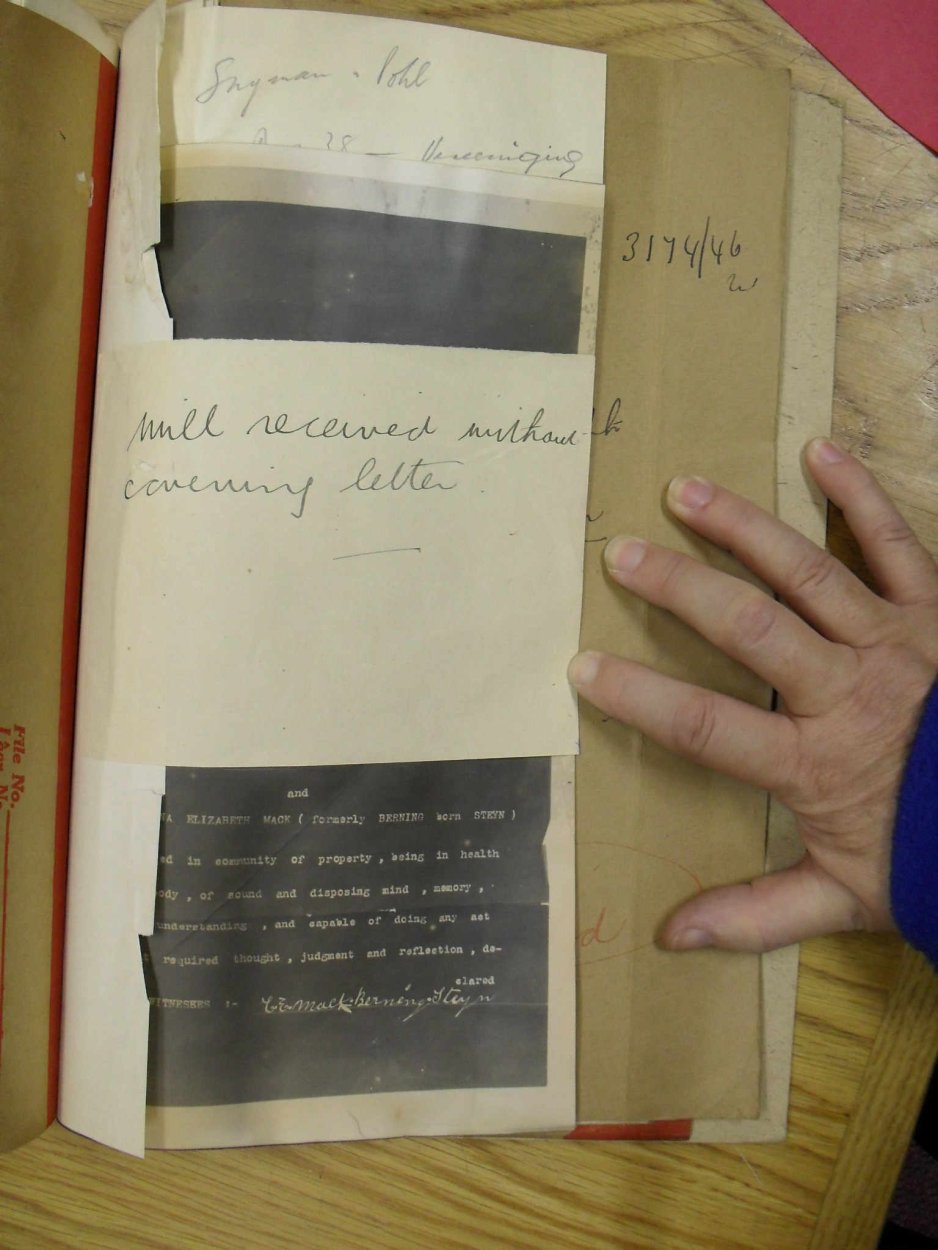 Snyman & Pohl
28 — Vereeniging
3174/46
Will received without
covering letter.
and
NA ELIZABETH MACK ( formerly BERNING born STEYN )
ed in community of property , being in health
ody , of sound and disposing mind , memory ,
understanding , and capable of doing any act
t required thought , judgment and reflection , de-
clared
ITNESSES :- C.E. Mack. Berning. Steyn
File No.